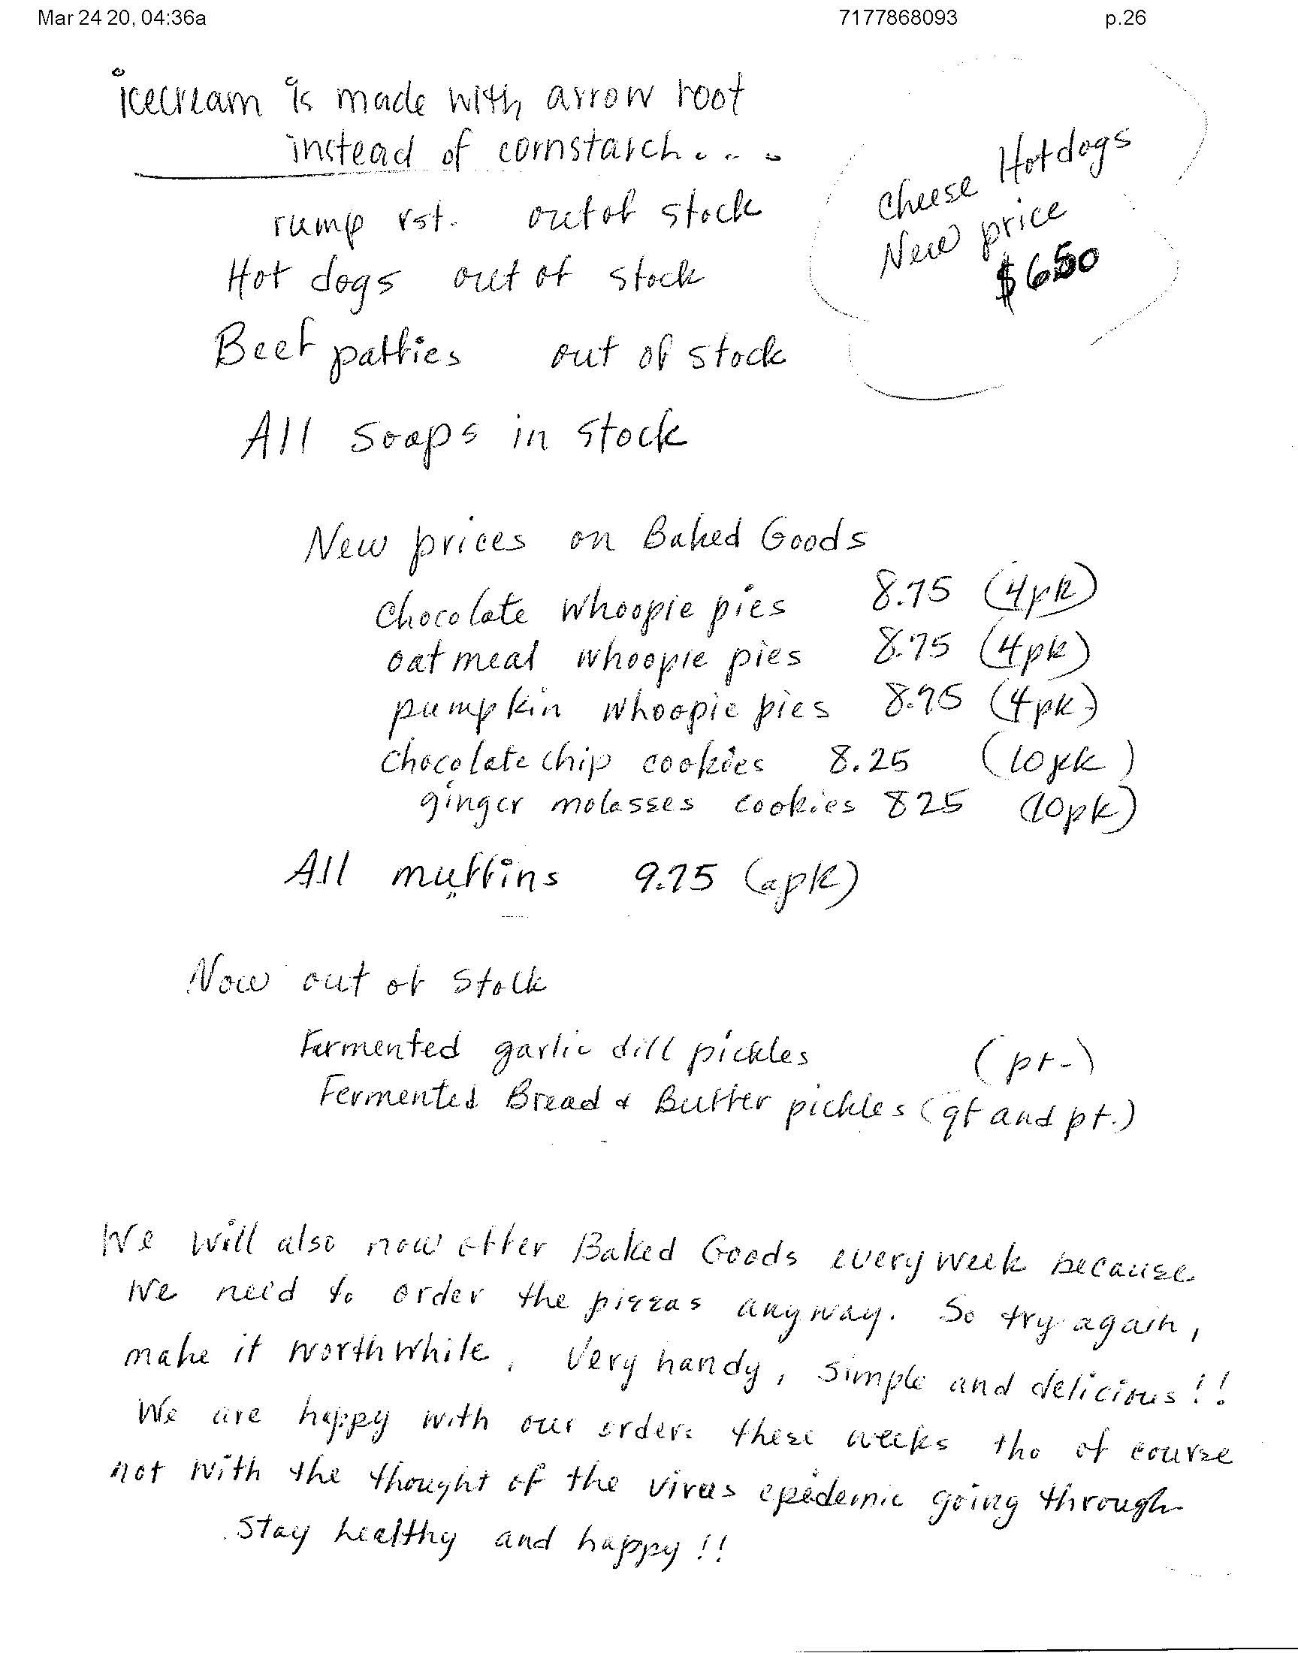 Mar 24 20, 04:36a 7177868093 p.26
icecream is made with arrow root
instead of cornstarch....
rump rst. out of stock
Hot dogs out of stock
Beef patties out of stock
All soaps in stock
Cheese Hotdogs
New price
$650
New prices on Baked Goods
chocolate whoopie pies 8.75 (4pk)
oatmeal whoopie pies 8.75 (4pk)
pumpkin whoopie pies 8.95 (4pk)
chocolate chip cookies 8.25 (10pk)
ginger molasses cookies 825 (10pk)
All muffins 9.75
Now out of stock
Fermented garlic dill pickles (pt.)
Fermented Bread & Butter pickles (qt and pt.)
We will also now offer Baked Goods every week because
we need to order the pizzas anyway. So try again,
make it worthwhile. Very handy, simple and delicious!!
We are happy with our orders these weeks tho of course
not with the thought of the virus epidemic going through
Stay healthy and happy!!